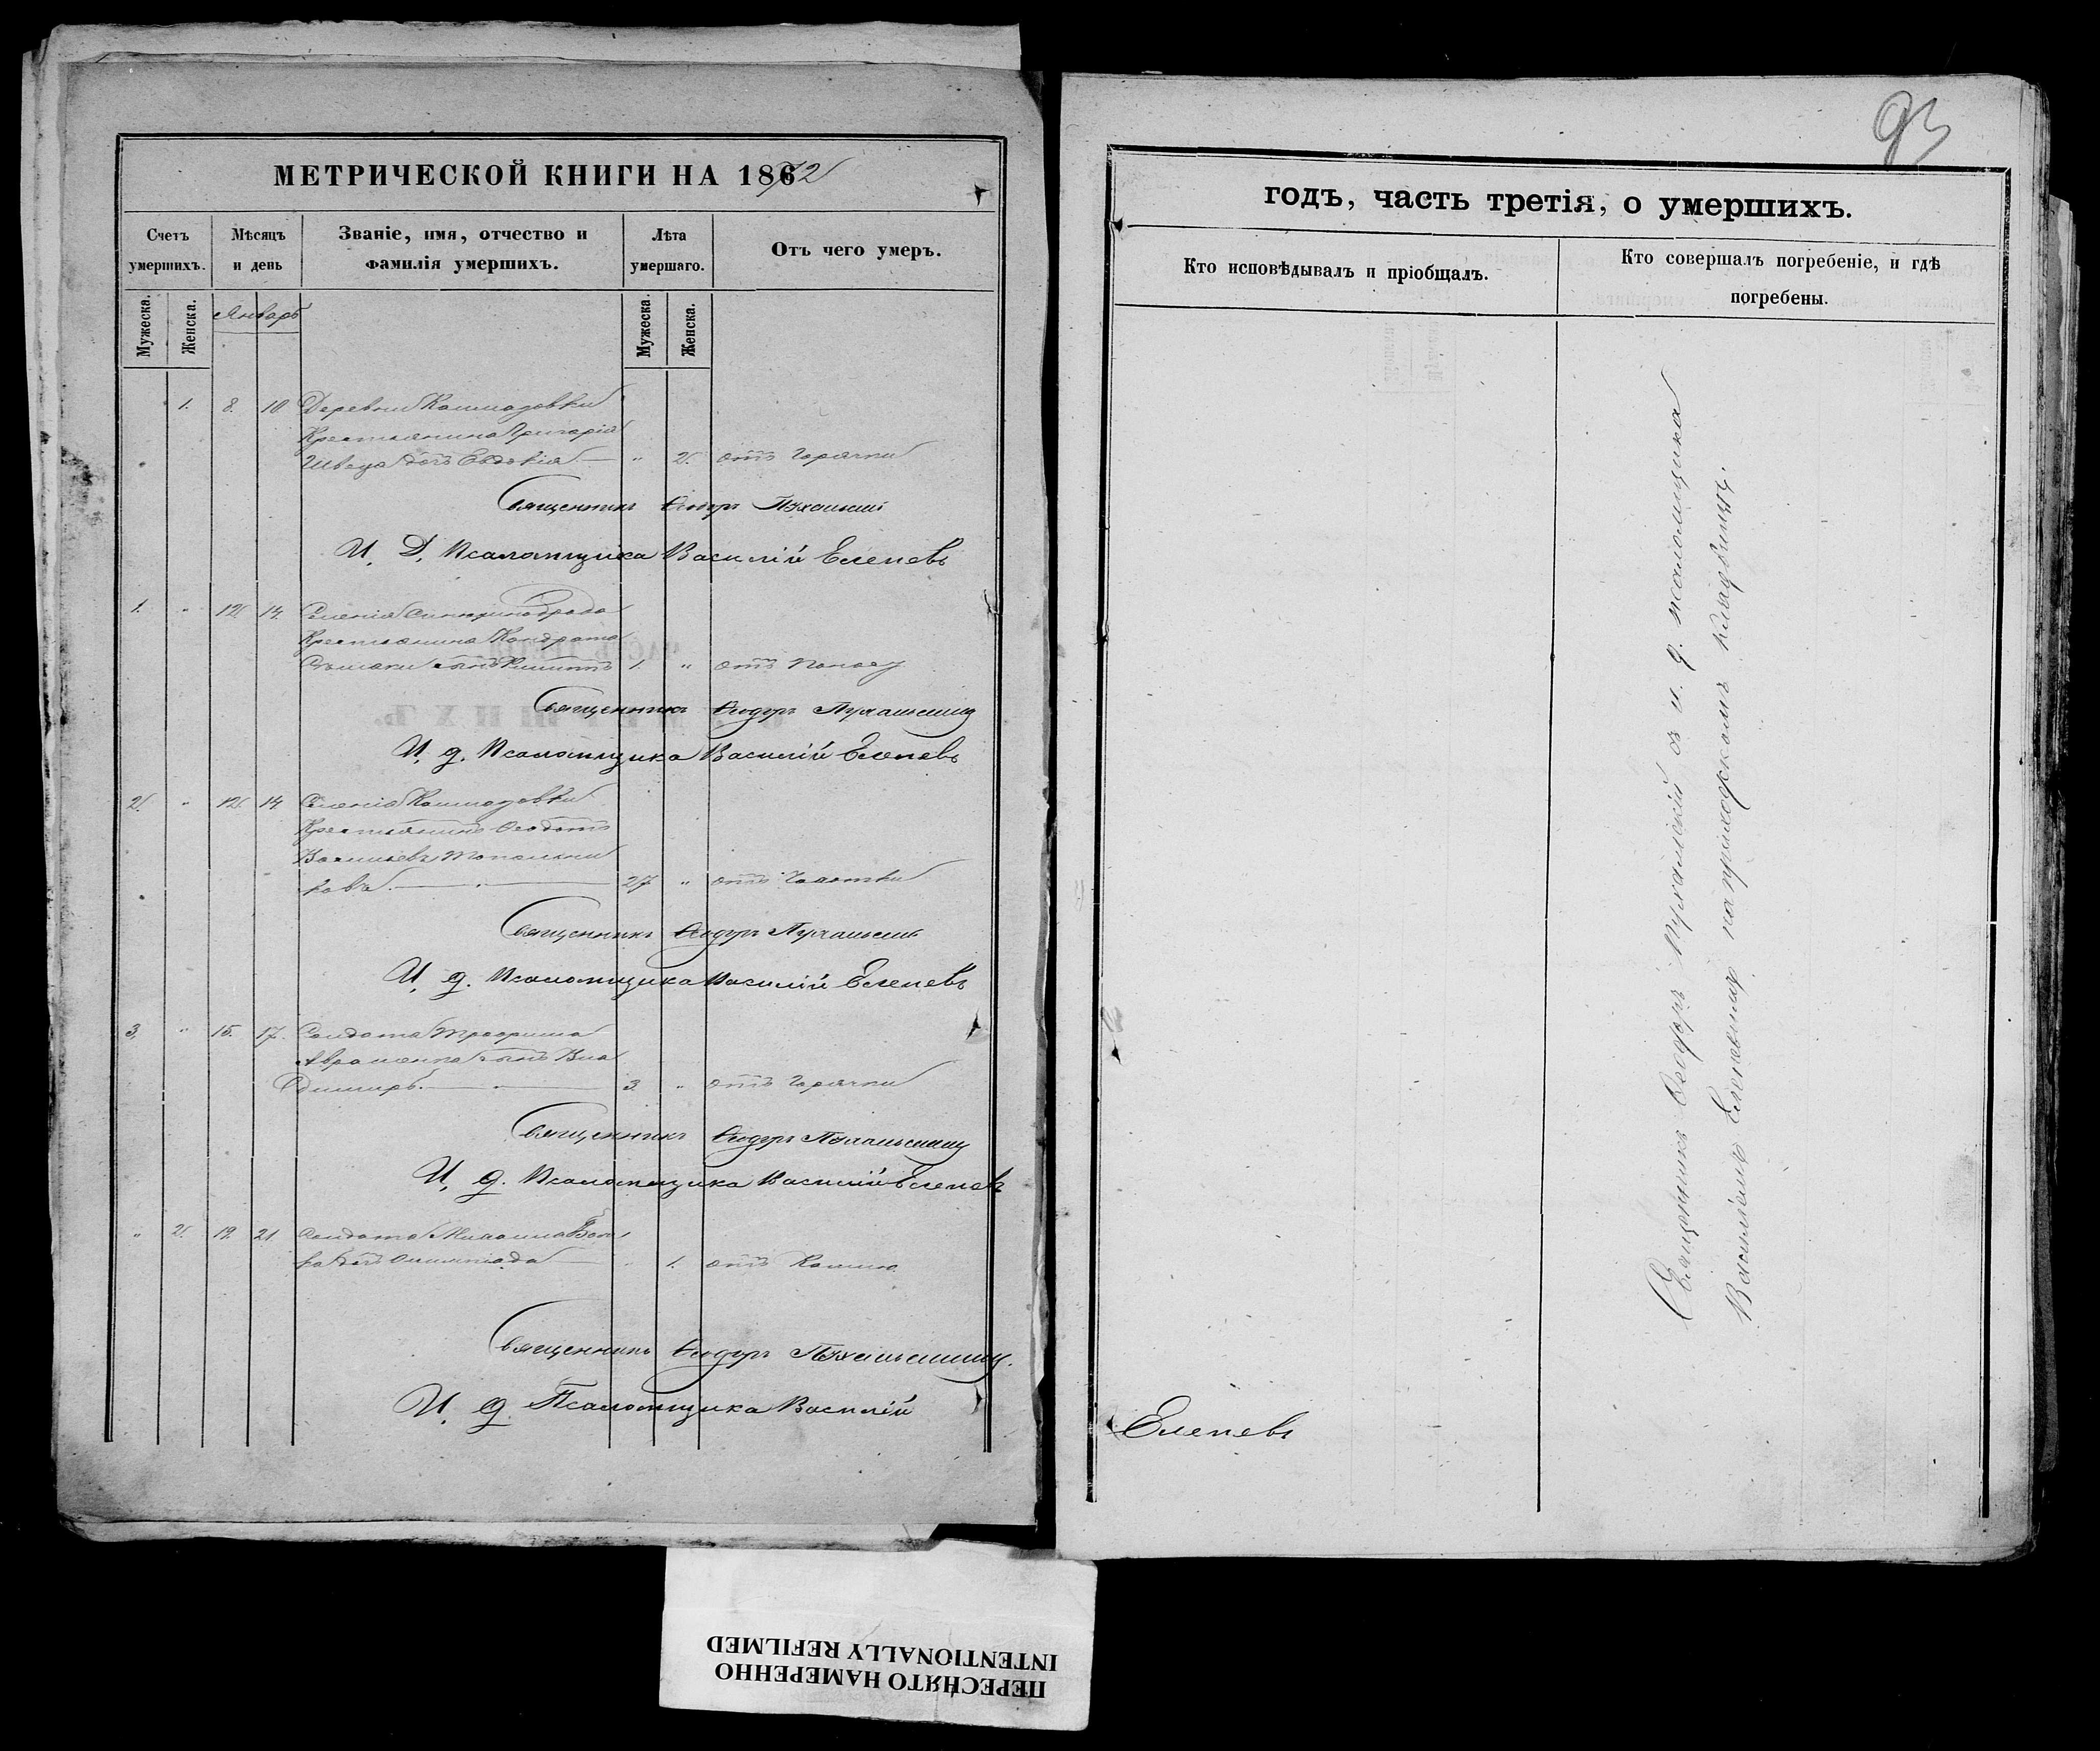 МЕТРИЧЕСКОЙ КНИГИ НА 1872
Счетъ умершихъ.
Мѣсяцъ и день
Званіе, имя, отчество и фамилія умершихъ.
Лѣта умершаго.
Отъ чего умеръ.
Мужеска.
Женска.
Январь
Мужеска.
Женска.
1. 8. 10 Деревни
Крестьянина Григорія
Швеца дочь Евдокія — " 2. отъ горячки
Священникъ Ѳеодоръ Пухальскій
И. Д. Псаломщика Василій Слепевъ
1. " 12. 14. Селенія
Крестьянина Кондрата
сынъ 1. " отъ поносу
Священникъ Ѳеодоръ Пухальскій
И. д. Псаломщика Василій Слепевъ
2. " 12. 14. Селенія
Крестьянинъ Ѳеодотъ
Васильевъ
27 " отъ чахотки
Священникъ Ѳеодоръ Пухальскій
И. д. Псаломщика Василій Слепевъ
3. " 15. 17. Солдата Трофима
Авраменка сынъ Вла
димиръ. — 3. " отъ горячки
Священникъ Ѳеодоръ Пухальскій
И. д. Псаломщика Василій Слепевъ
" 2. 19. 21. Солдата
дочь Олимпіада — 1. отъ кашлю
Священникъ Ѳеодоръ Пухальскій.
И. д. Псаломщика Василій
93
годъ, часть третія, о умершихъ.
Кто исповѣдывалъ и пріобщалъ.
Кто совершалъ погребеніе, и гдѣ погребены.
Священникъ Ѳеодоръ Пухальскій съ и. д. псаломщика
Василіемъ на приходскомъ кладбищѣ.
Слепевъ
ПЕРЕСНЯТО НАМЕРЕННО
INTENTIONALLY REFILMED